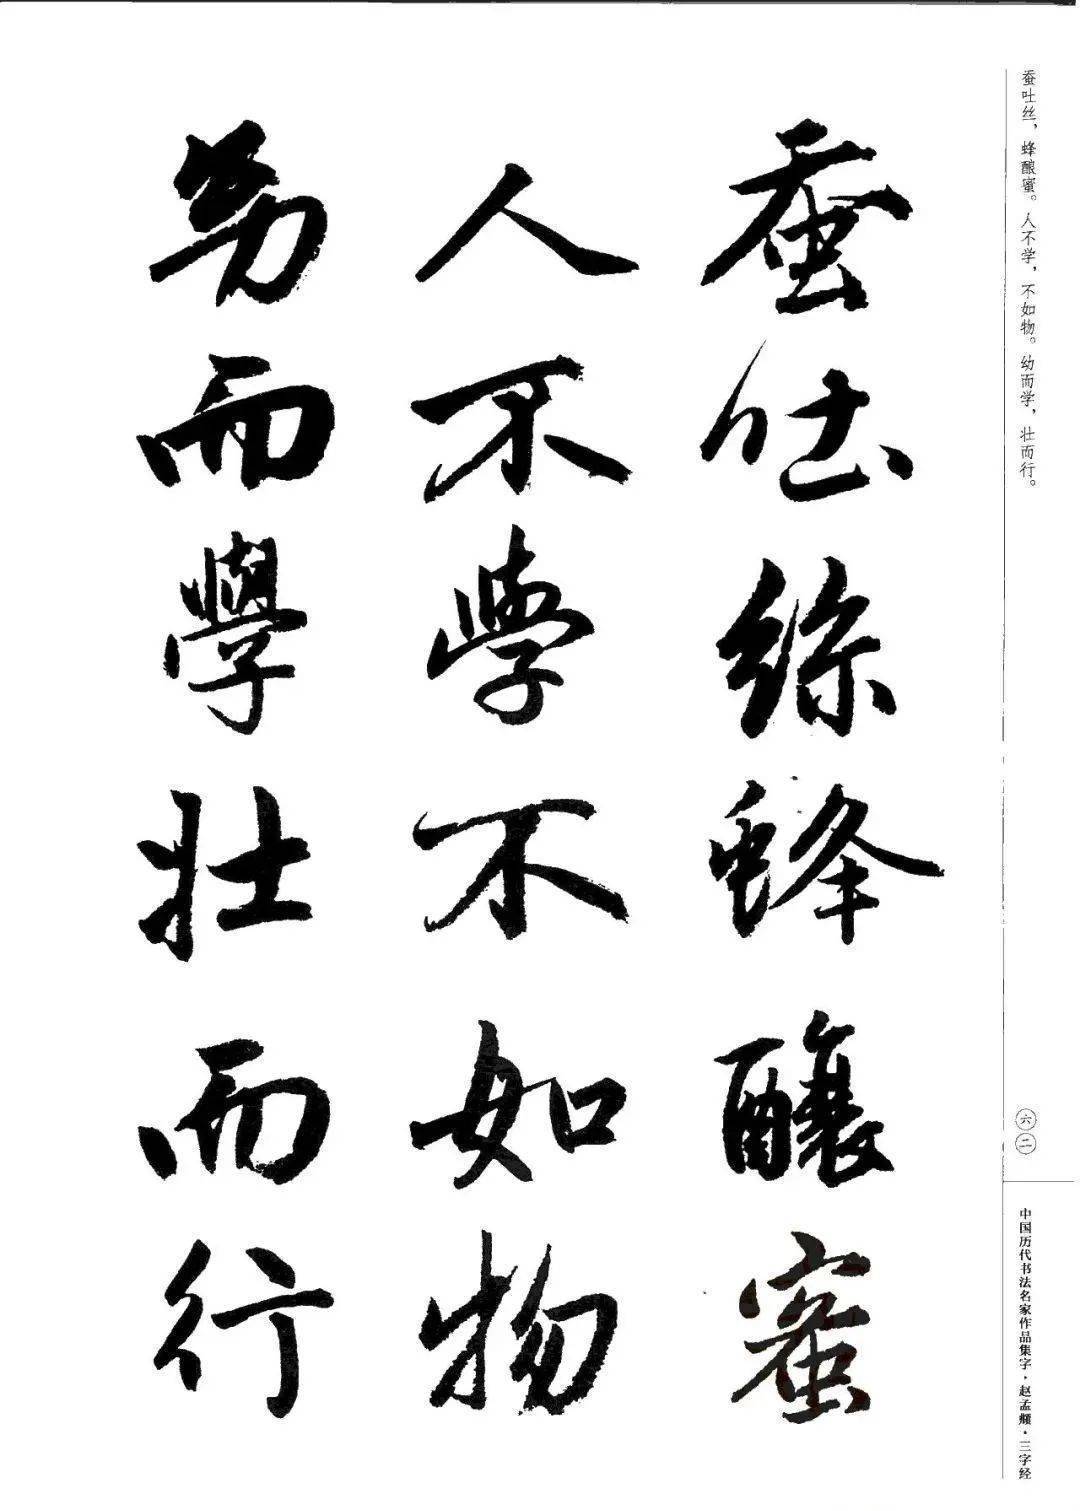 蚕吐丝，蜂酿蜜。人不学，不如物。幼而学，壮而行。
蚕吐絲蜂釀蜜
人不學不如物
㓜而學壯而行
六二
中国历代书法名家作品集字·赵孟頫·三字经